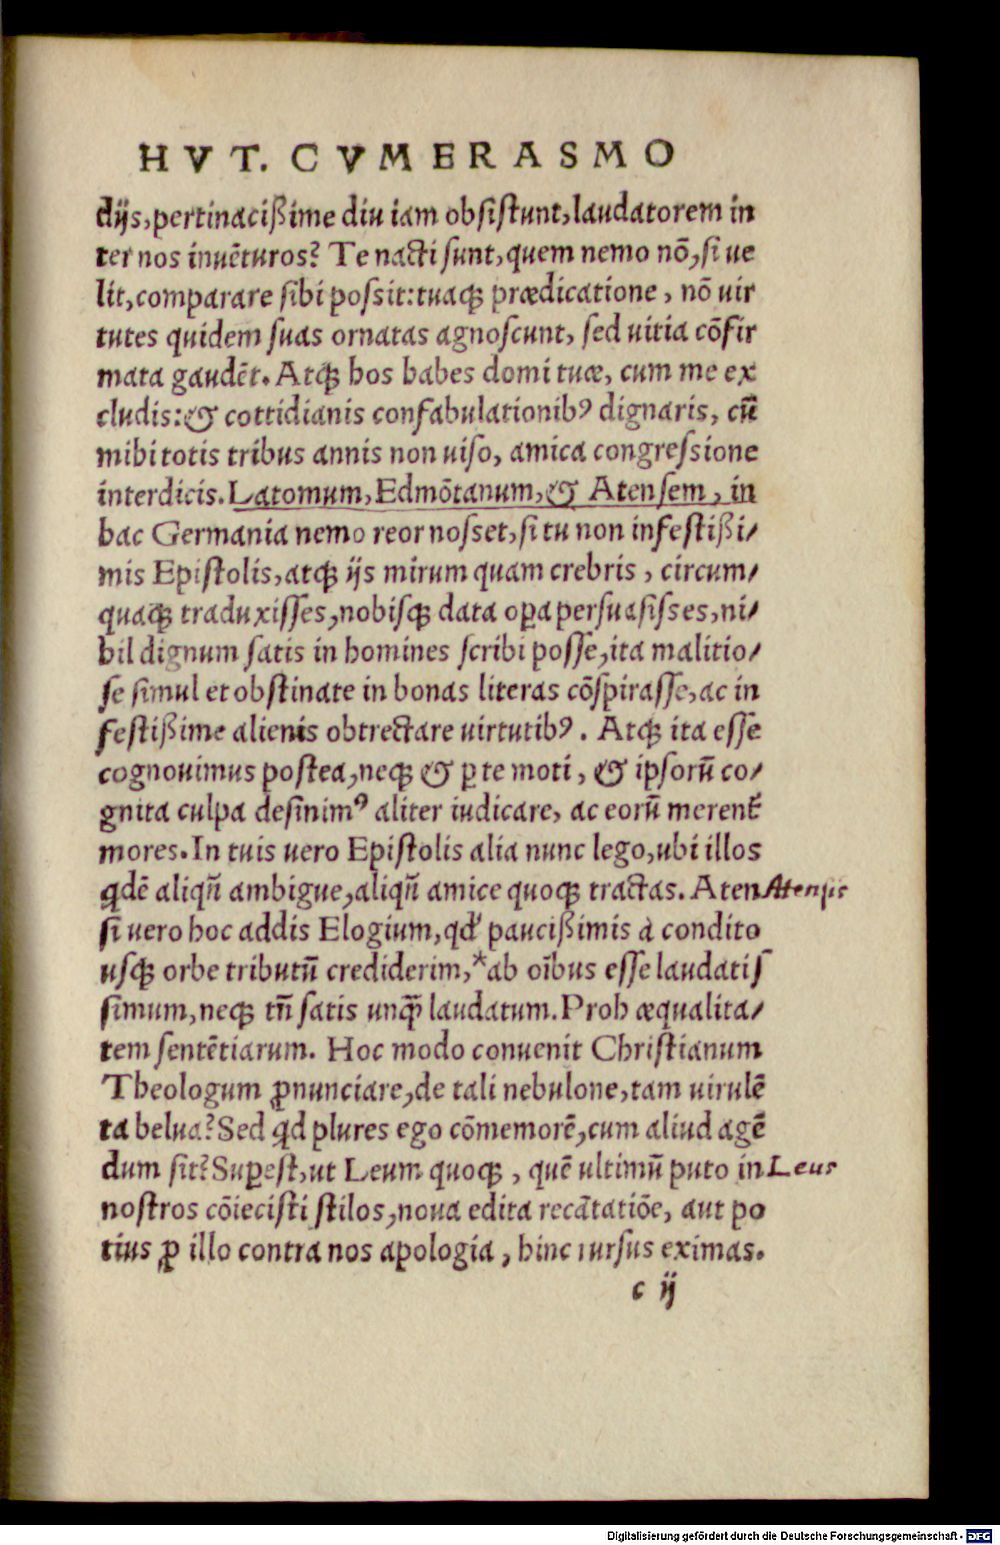 HVT. CVM ERASMO
dijs, pertinacißime diu iam obsistunt, laudatorem in
ter nos inuẽturos? Te nacti sunt, quem nemo nõ, si ue
lit, comparare sibi possit: tuaqꝫ prædicatione, nõ uir
tutes quidem suas ornatas agnoscunt, sed uitia cõfir
mata gaudẽt. Atqꝫ hos habes domi tuæ, cum me ex
cludis: & cottidianis confabulationibꝰ dignaris, cũ
mihi totis tribus annis non uiso, amica congressione
interdicis. Latomum, Edmõtanum, & Atensem, in
hac Germania nemo reor nosset, si tu non infestißi/
mis Epistolis, atqꝫ ijs mirum quam crebris, circum/
quaqꝫ traduxisses, nobisqꝫ data oꝑa persuasisses, ni/
hil dignum satis in homines scribi posse, ita malitio/
se simul et obstinate in bonas literas cõspirasse, ac in
festißime alienis obtrectare uirtutibꝰ. Atqꝫ ita esse
cognouimus postea, neqꝫ & ꝑ te moti, & ipsorũ co/
gnita culpa desinimꝰ aliter iudicare, ac eorũ merent᷑
mores. In tuis uero Epistolis alia nunc lego, ubi illos
qͥdẽ aliqñ ambigue, aliqñ amice quoqꝫ tractas. Aten Atensis
si uero hoc addis Elogium, qd' paucißimis à condito
usqꝫ orbe tributũ crediderim, *ab oĩbus esse laudatis
simum, neqꝫ tñ satis unqᷓ laudatum. Proh æqualita/
tem sentẽtiarum. Hoc modo conuenit Christianum
Theologum ꝓnunciare, de tali nebulone, tam uirulẽ
ta belua? Sed qͥd plures ego cõmemorẽ, cum aliud agẽ
dum sit? Suꝑest, ut Leum quoqꝫ, quẽ ultimũ puto in Leus
nostros cõiecisti stilos, noua edita recãtatiõe, aut po
tius ꝓ illo contra nos apologia, hinc rursus eximas.
c ij
Digitalisierung gefördert durch die Deutsche Forschungsgemeinschaft - DFG